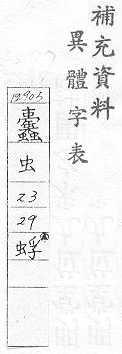 補充資料
異體字表
12905
虫
23
29
蜉